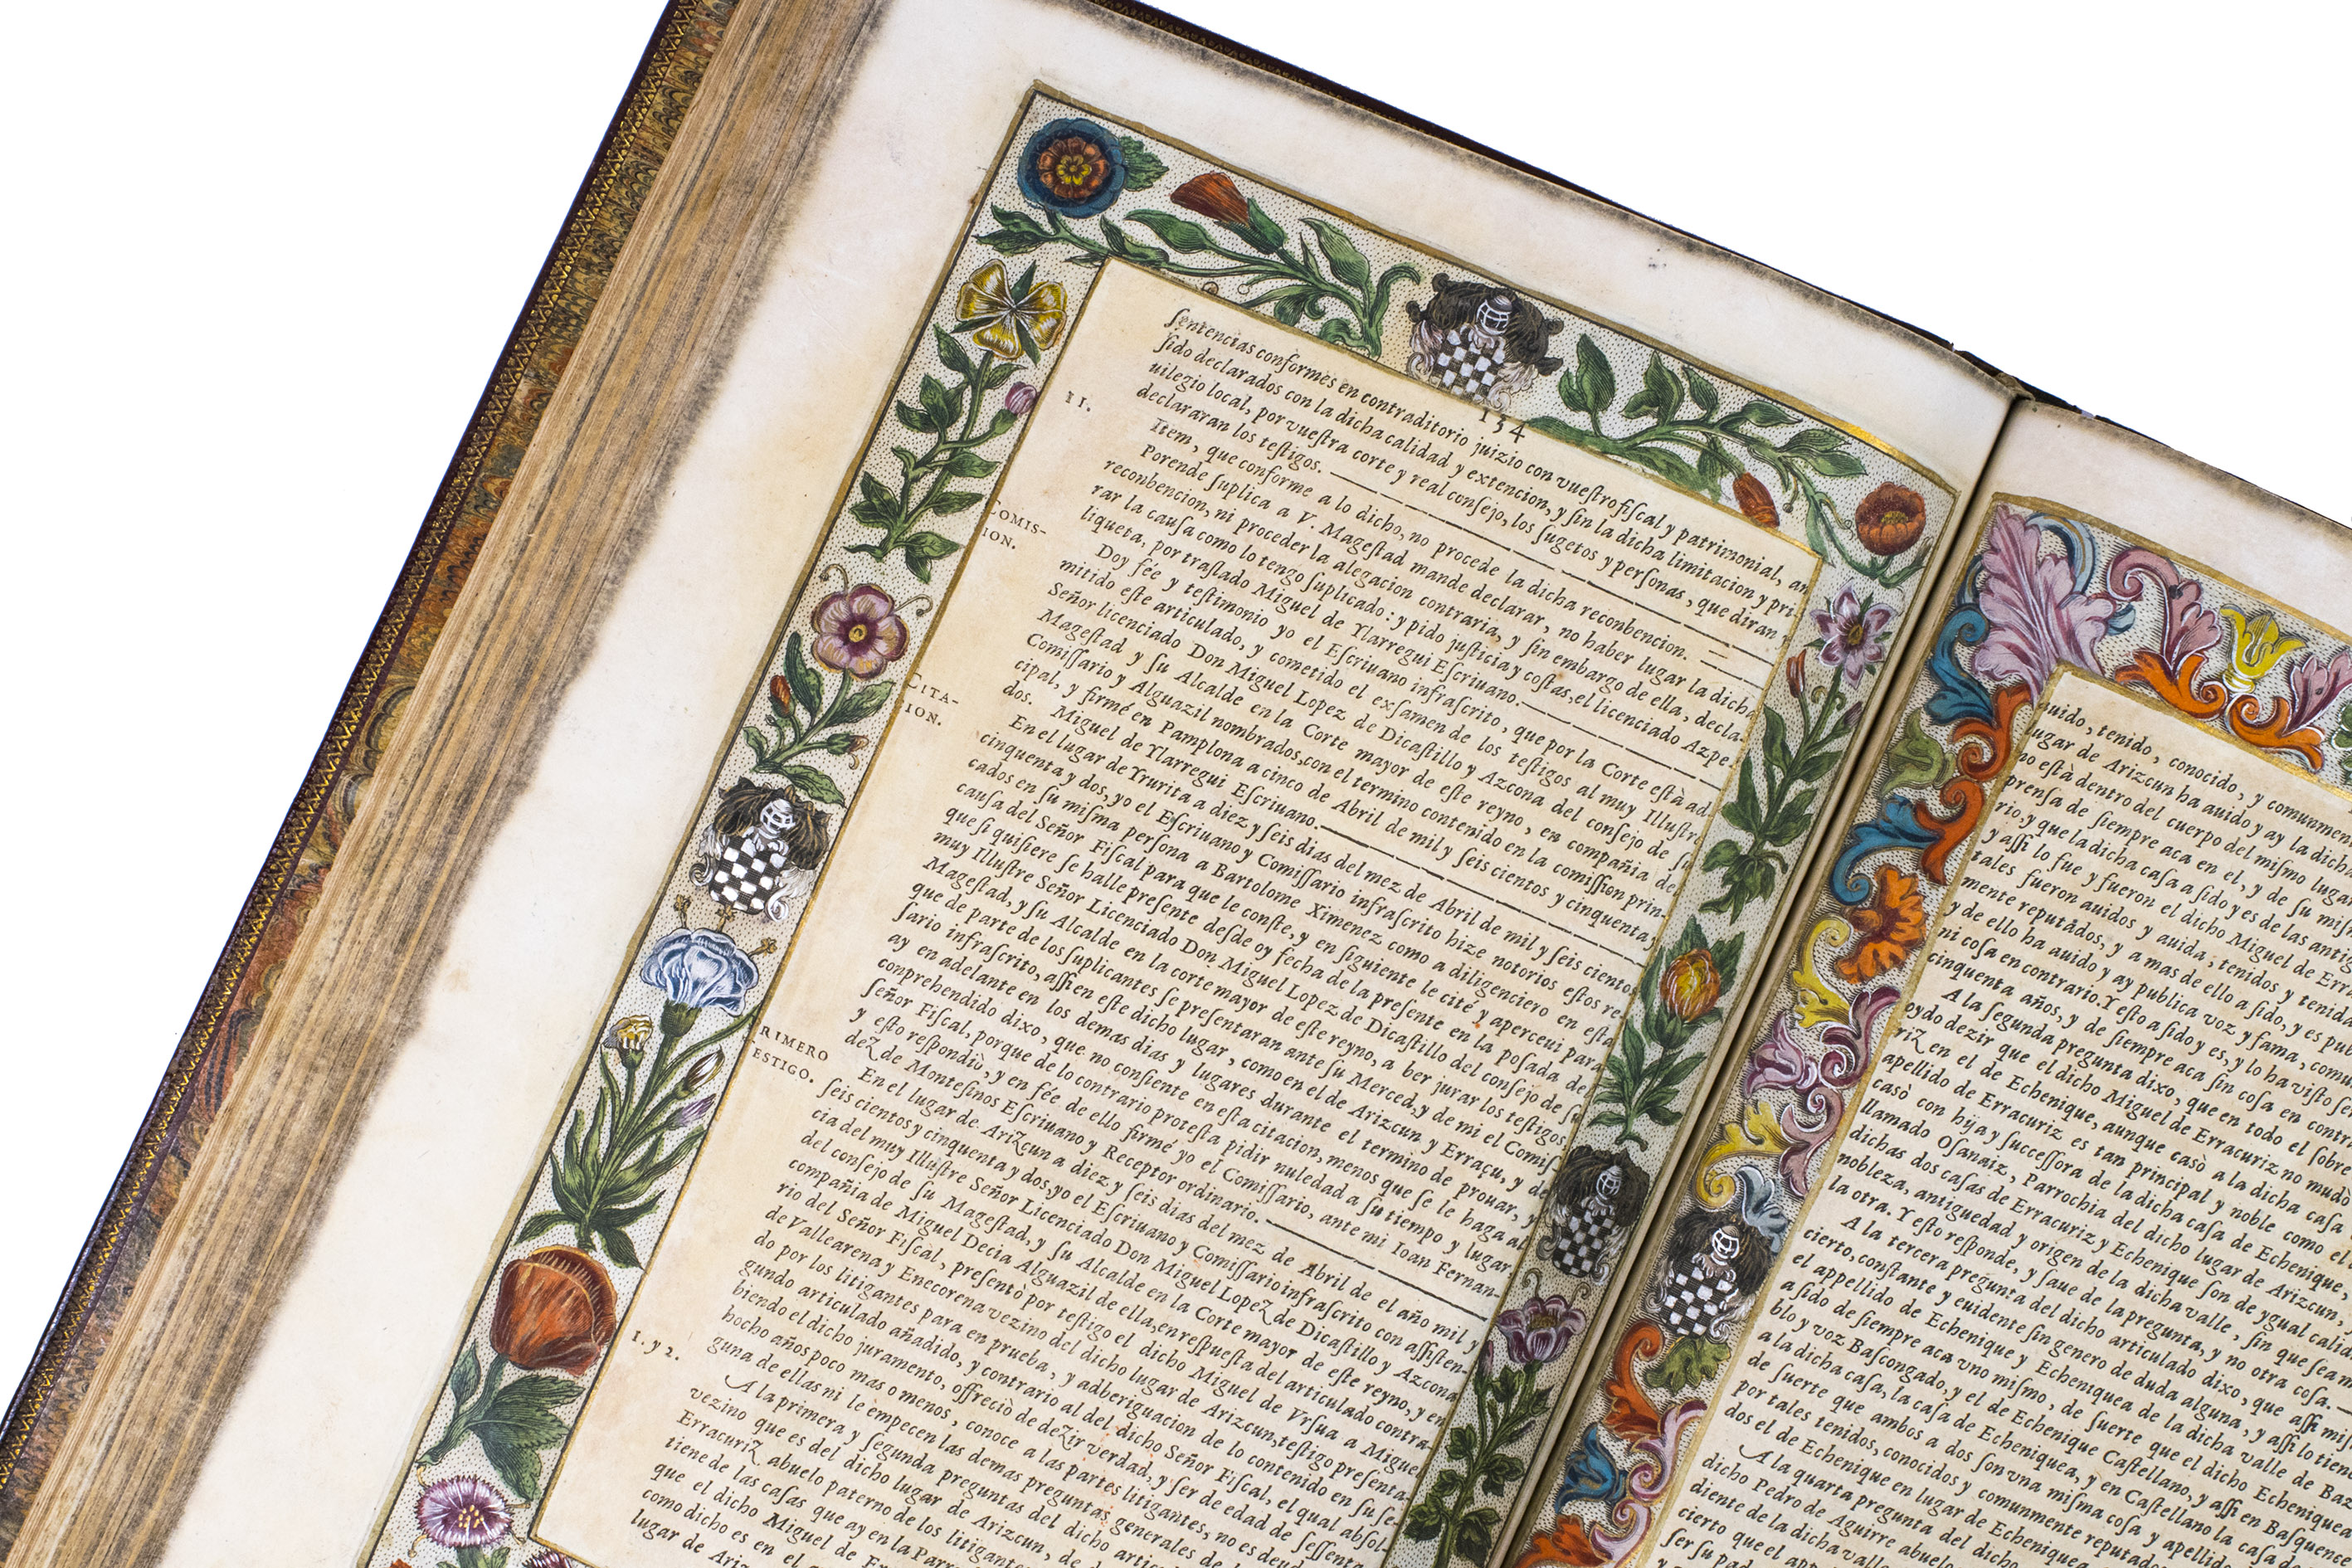 134
sentencias conformes en contraditorio juizio con vuestro fiscal y patrimonial, an
sido declarados con la dicha calidad y extencion, y sin la dicha limitacion y pri-
uilegio local, por vuestra corte y real consejo, los sugetos y personas, que diran y
declararan los testigos.
11.
Item, que conforme a lo dicho, no procede la dicha reconbencion.
Porende suplica a V. Magestad mande declarar, no haber lugar la dicha
reconbencion, ni proceder la alegacion contraria, y sin embargo de ella, decla-
rar la causa como lo tengo suplicado: y pido justicia y costas, el licenciado Azpe-
liqueta, por traslado Miguel de Ylarregui Escriuano.
COMIS-
ION.
Doy fée y testimonio yo el Escriuano infrascrito, que por la Corte està ad-
mitido este articulado, y cometido el exsamen de los testigos al muy Illustre
Señor licenciado Don Miguel Lopez de Dicastillo y Azcona del consejo de su
Magestad y su Alcalde en la Corte mayor de este reyno, en compañia de
Comissario y Alguazil nombrados, con el termino contenido en la comission prin-
cipal, y firmé en Pamplona a cinco de Abril de mil y seis cientos y cinquenta y
dos. Miguel de Ylarregui Escriuano.
CITA-
ION.
En el lugar de Yrurita a diez y seis dias del mez de Abril de mil y seis cientos
cinquenta y dos, yo el Escriuano y Comissario infrascrito hize notorios estos re-
cados en su misma persona a Bartolome Ximenez como a diligenciero en esta
causa del Señor Fiscal para que le conste, y en siguiente le cité y aperceui para
que si quisiere se halle presente desde oy fecha de la presente en la posada de
muy Illustre Señor Licenciado Don Miguel Lopez de Dicastillo del consejo de su
Magestad, y su Alcalde en la corte mayor de este reyno, a ber jurar los testigos
que de parte de los suplicantes se presentaran ante su Merced, y de mi el Comis-
sario infrascrito, assi en este dicho lugar, como en el de Arizcun y Erraçu, y de
ay en adelante en los demas dias y lugares durante el termino de prouar, y
conprehendido dixo, que no consiente en esta citacion, menos que se le haga al
señor Fiscal, porque de lo contrario protesta pidir nuledad a su tiempo y lugar,
y esto respondiò, y en fée de ello firmé yo el Comissario, ante mi Ioan Fernan-
dez de Montesinos Escriuano y Receptor ordinario.
RIMERO
ESTIGO.
En el lugar de Arizcun a diez y seis dias del mez de Abril de el año mil y
seis cientos y cinquenta y dos, yo el Escriuano y Comissario infrascrito con assisten-
cia del muy Illustre Señor Licenciado Don Miguel Lopez de Dicastillo y Azcona
del consejo de su Magestad, y su Alcalde en la Corte mayor de este reyno, y en
compañia de Miguel Decia Alguazil de ella, en respuesta del articulado contra-
rio del Señor Fiscal, presentò por testigo el dicho Miguel de Vrsua a Miguel
de Vallearena y Enecorena vezino del dicho lugar de Arizcun, testigo presenta-
do por los litigantes para en prueba, y adberiguacion de lo contenido en su se-
gundo articulado añadido, y contrario al del dicho Señor Fiscal, el qual absol-
biendo el dicho juramento, offreciò de dezir verdad, y ser de edad de sessenta
hocho años poco mas o menos, conoce a las partes litigantes, no es deud
guna de ellas ni le empecen las demas preguntas generales de l
1. y 2.
A la primera y segunda preguntas del dicho artic
vezino que es del dicho lugar de Arizcun, de
Erracuriz abuelo paterno de los litigant
tiene de las casas que ay en la Parr
que el dicho Miguel de Er
como dicho es en el
lugar de Ariz
uido, tenido, conocido, y comunmen
lugar de Arizcun ha auido y ay la dich
no està dentro del cuerpo del mismo luga
prensa de siempre aca en el, y de su mis
rio, y que la dicha casa a sido y es de las antig
y assi lo fue y fueron el dicho Miguel de Erra
tales fueron auidos y auida, tenidos y tenida
mente reputados, y a mas de ello a sido, y es pub
y de ello ha auido y ay publica voz y fama, comu
ni cosa en contrario. Y esto a sido y es, y lo ha visto se
cinquenta años, y de siempre aca sin cosa en contr
A la segunda pregunta dixo, que en todo el sobre
oydo dezir que el dicho Miguel de Erracuriz no mudó
riz en el de Echenique, aunque casò a la dicha casa
apellido de Erracuriz es tan principal y noble como el
casò con hija y successora de la dicha casa de Echenique,
llamado Osanaiz, Parrochia del dicho lugar de Arizcun,
dichas dos casas de Erracuriz y Echenique son de ygual calid
nobleza, antiguedad y origen de la dicha valle, sin que sea m
la otra. Y esto responde, y saue de la pregunta, y no otra cosa.
A la tercera pregunta del dicho articulado dixo, que assi mis
cierto, constante y euidente sin genero de duda alguna, y assi lo tien
el appellido de Echenique y Echeniquea de la dicha valle de Baz
a sido de siempre aca vno mismo, de suerte que el dicho Echenique
blo y voz Bascongado, y el de Echenique Castellano, y assi en Basquen
a la dicha casa, la casa de Echeniquea, y en Castellano la casa d
de suerte que ambos a dos son vna misma cosa y apellid
por tales tenidos, conocidos y comunmente reputado
dos el de Echenique en lugar de Echenique
A la quarta pregunta del dicho
dicho Pedro de Aguirre abuelo
diente de la dicha valle
cierto que el app
ser su pad